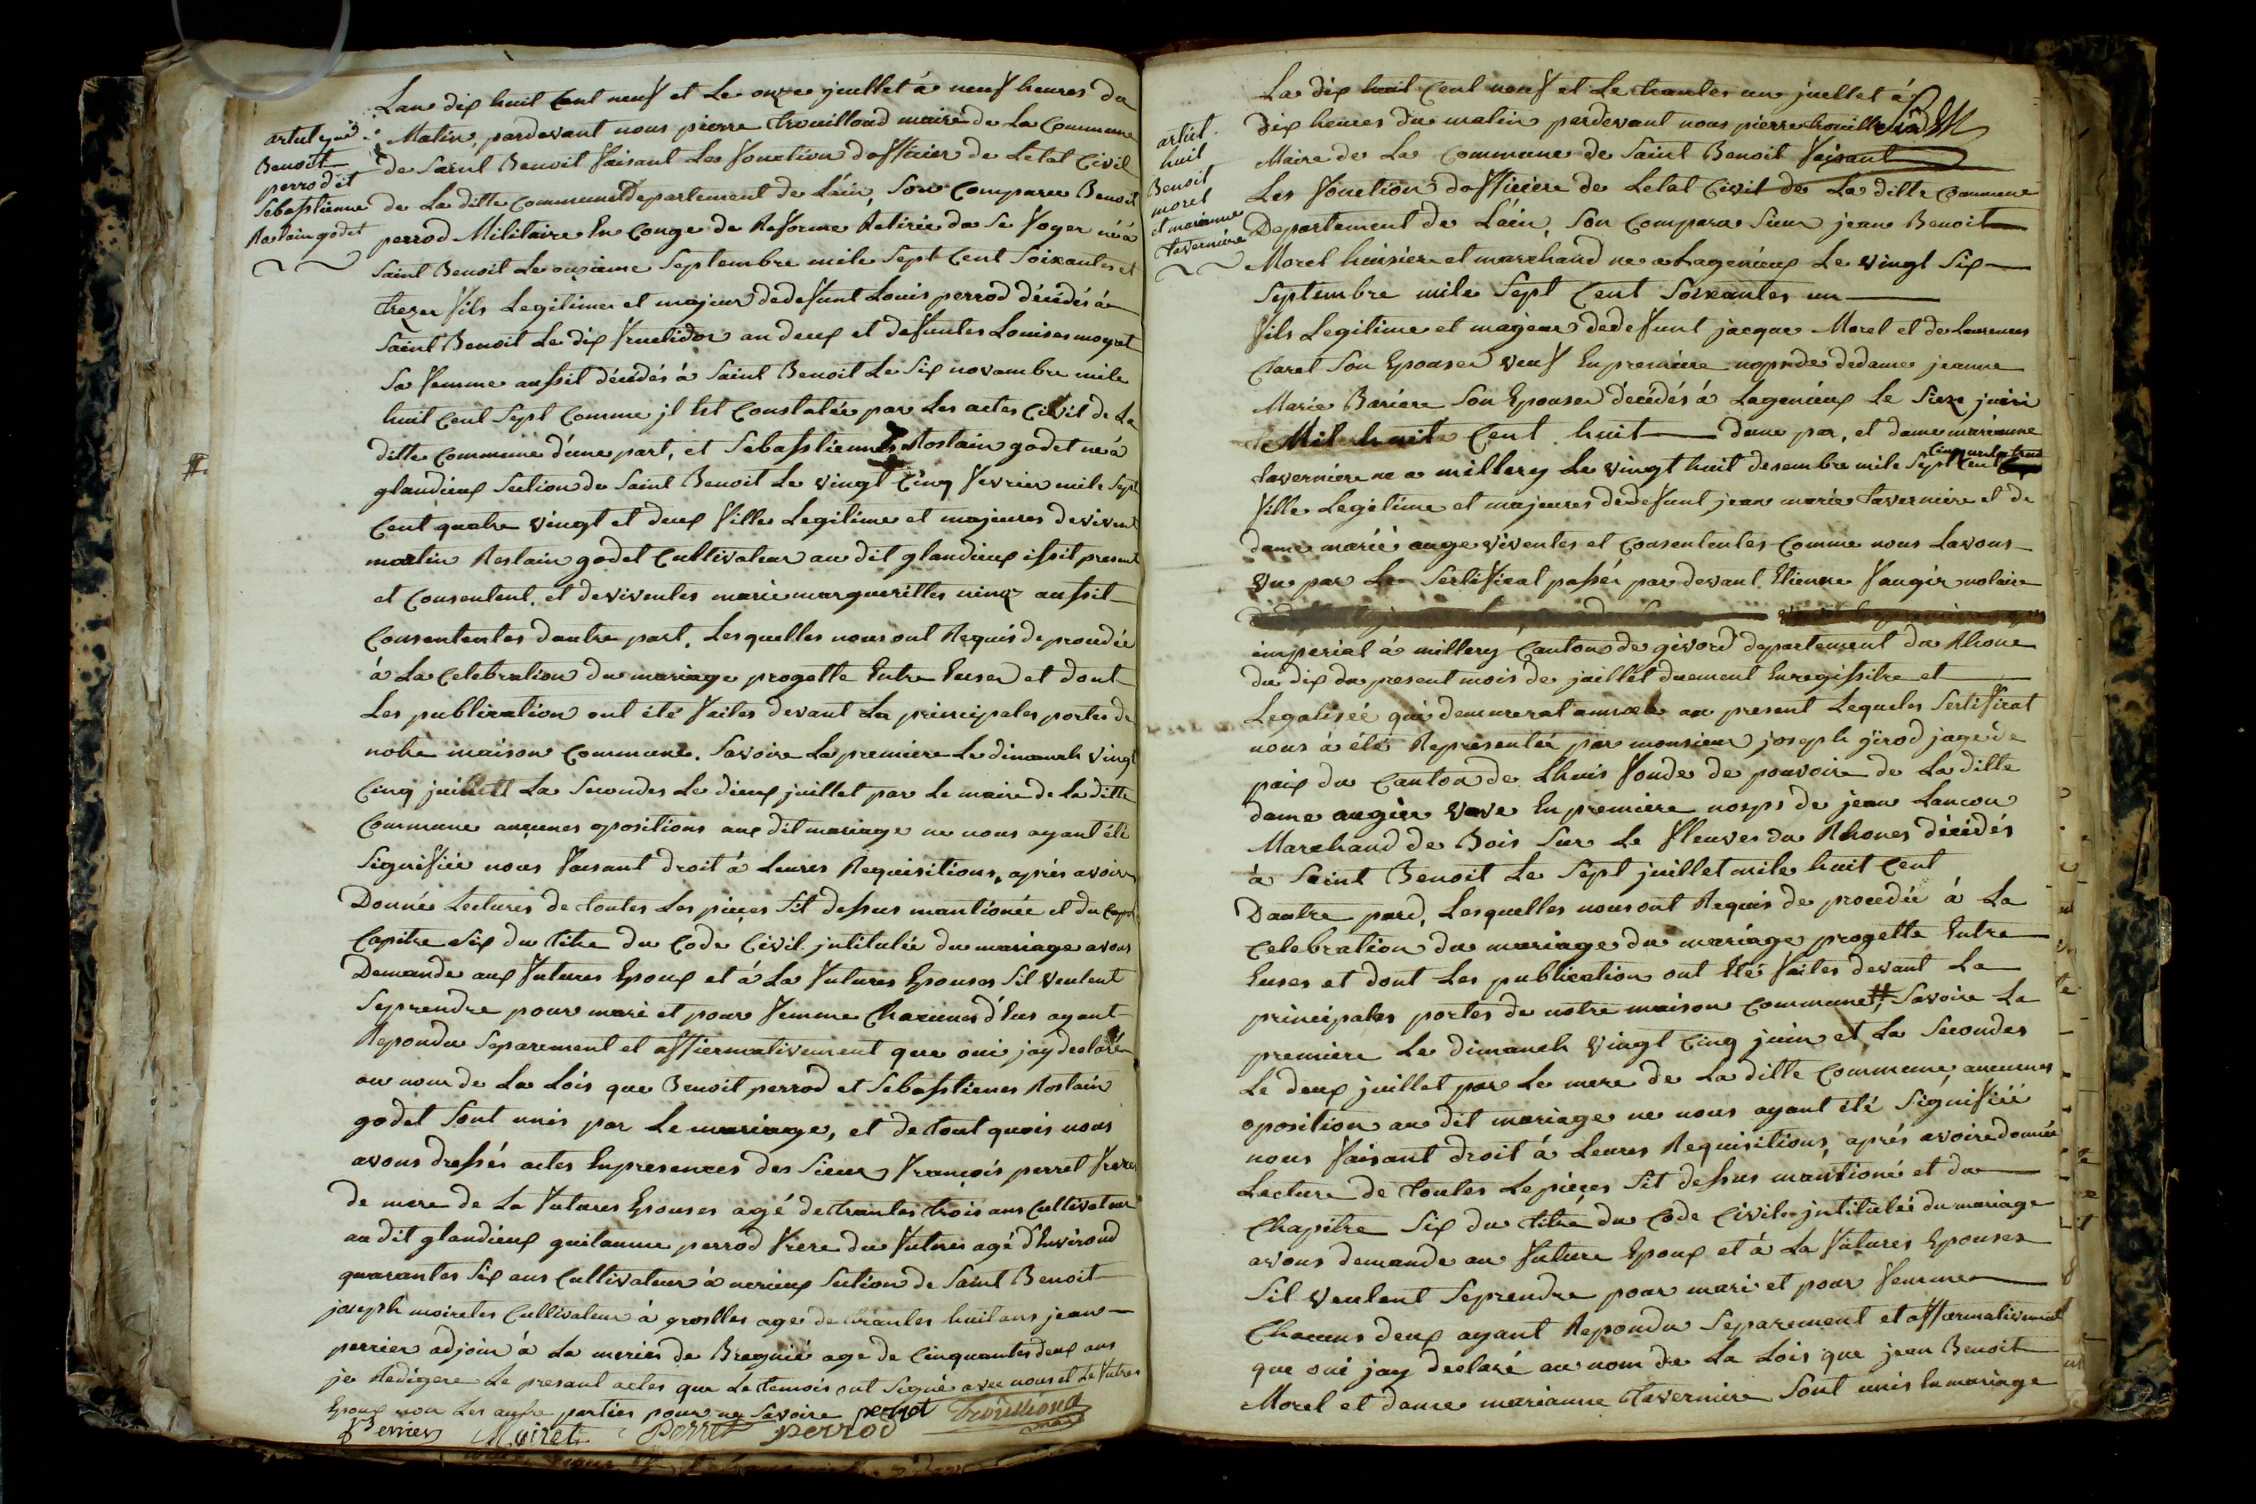 artul 
Benoit
perrod et
Sebasstienne
Rostain godet
Lan dix huit Cent neuf et Le onze juillet à neuf heures du
Matin, pardevant nous pierre trouilloud maire de La Commune
de Saint Benoit faisant Les fonction dofficier de Letat Civil
de La ditte Commune Departement de Láin, Son Comparu Benoit
perrod Militaire En Conge de Reforme Retirée da Se foyer né à
Saint Benoit Le onsieme Septembre mile Sept Cent Soixantes et
treze fils Legitime et majeur dedefunt Louis perrod décédés à
Saint Benoit Le dix fructidor an deux et defuntes Louises moyret
Sa femme aussit décédés à Saint Benoit Le Six novambre mile
huit Cent Sept Comme jl Est Constatée par Les actes Civil de La
ditte Commune d'une part, et Sebasstiennes Rostain godet né à
glandieux Section de Saint Benoit Le vingt Cinq fevrier mile Sept
Cent quatre vingt et deux fille Legitime et majeures de vivent
martin Rostain godet Cultivateur au dit glandieux issit present
et Consentent, et de viventes marie marguerittes ninoz aussit
Consententes dautre part, Lesquelles nous ont Requis de procudée
à La Celebration du mariage progette Entre Euser et dont
Les publication ont été faites devant La principales portes de
notre maison Commune. Savoire La premiere Le dimanch vingt
Cinq juillet La Secondes Le dieux juillet par Le maire de La ditte
Commune aucunes opositions aux dit mariage ne nous ayant été
Signifiée nous faisant droit à Leures Requisitions, aprés avoire
Donnée Lectures de toutes Les pieces Sit dessus mantionée et du
Capitre Six du titre du Code Civil jntitulée du mariage avons
Demande aux futures Epoux et à La futures Epouses Sil veulent
Seprendre pour mari et pour femme Chacunes d'Eus ayant
Repondu Separement et affiermativement que oui jay declaré
au nom de La Lois que Benoit perrod et Sebasstienes Rostain
godet Sont unis par Le mariage, et de tout quois nous
avons dressés actes Enpresences des Sieur François perret frere
de mere de La futures Epouses agé de trantes trois ans Cultivateur
au dit glandieux guilaume perrod frere du futures agé d'Environd
quarantes Six ans Cultivateur à nerieux Section de Saint Benoit
joseph moiretes Cultivateur à groslles age de trantes huit ans jean
perrier adjoin à La meries de Bregnié age de Cinquantes deux ans
je Redigere Le presant actes que Le temois ont Signé avec nous et Le futures
Epoux non Les autre parties pour ne Savoire perrot Trouilloud
Perrier Moiret Perret perrod
artiel
huit
Benoit
morel
et marianne
taverniere
La dix huit Cent neuf et Le trantes un juillet à
Dix heures du matin pardevant nous pierre
Maire de La Commune de Saint Benoit faisant
Les fonction dofficiere de Letat Civil de La ditte Commune
Departement de Láin, Son Compara Sieur jean Benoit
Morel huisiere et marchand ne a Lagenieux Le vingt Six
Septembre mile Sept Cent Soixantes un
fils Legitime et majeur dedefunt jacque Morel et de Laurences
Claret Son Epouser veuf En premiere de dedame jeanne
Marie Bariere Son Epouser décédés à Lagenieux Le Sieze juein
Mil huit Cent huit dune par, et dame marianne
taverniere ne a millery Le vingt huit desembre mile Sept Cent Cinquante trois
fille Legitime et majeures dedefunt jean marie taverniere et de
dame marie auge viventes et Consententes Comme nous Lavons
vu par Le Sertificat passée par devant Etienne faugir notaire
impérial à millery Canton de givord departement du Rhone
du dix du present mois de juillet duement Enregissitre et
Legalisée qui demurerat au present Lequeles Sertificat
nous à été Representée par monsieur joseph jirod juge de
paix du Canton de Lhuis fonde de pouvoire de La ditte
dame augier veve En premiere de jean Lancon
Marchand de Bois Sur Le fleuves du Rhones décédés
à Saint Benoit Le Sept juillet mile huit Cent
Dautre pard, Lesquelles nous ont Requis de procedée à La
Celebration du mariage du mariage progette Entre
Euses et dont Les publication ont Eté faites devant La
principales portes de notre maison Commune # Savoire La
premiere Le dimanch vingt Cinq juin et La Secondes
Le deux juillet par Le mere de La ditte Commune, aucunes
oposition au dit mariage ne nous ayant été Signifiée
nous faisant droit à Leures Requisitions, aprés avoire donnée
Lecture de toutes Lepieces Sit dessus mantioné et du
Chapitre Six du titre du Code Civiles jntitulée du mariage
avons demande au future Epoux et à La futures Epouses
Sil veulent Seprendre pour mari et pour femme
Chacuns deux ayant Repondu Separement et affarmativement
que oui jay declaré au nom de La Lois que jean Benoit
Morel et dame marianne taverniere Sont unis En mariage